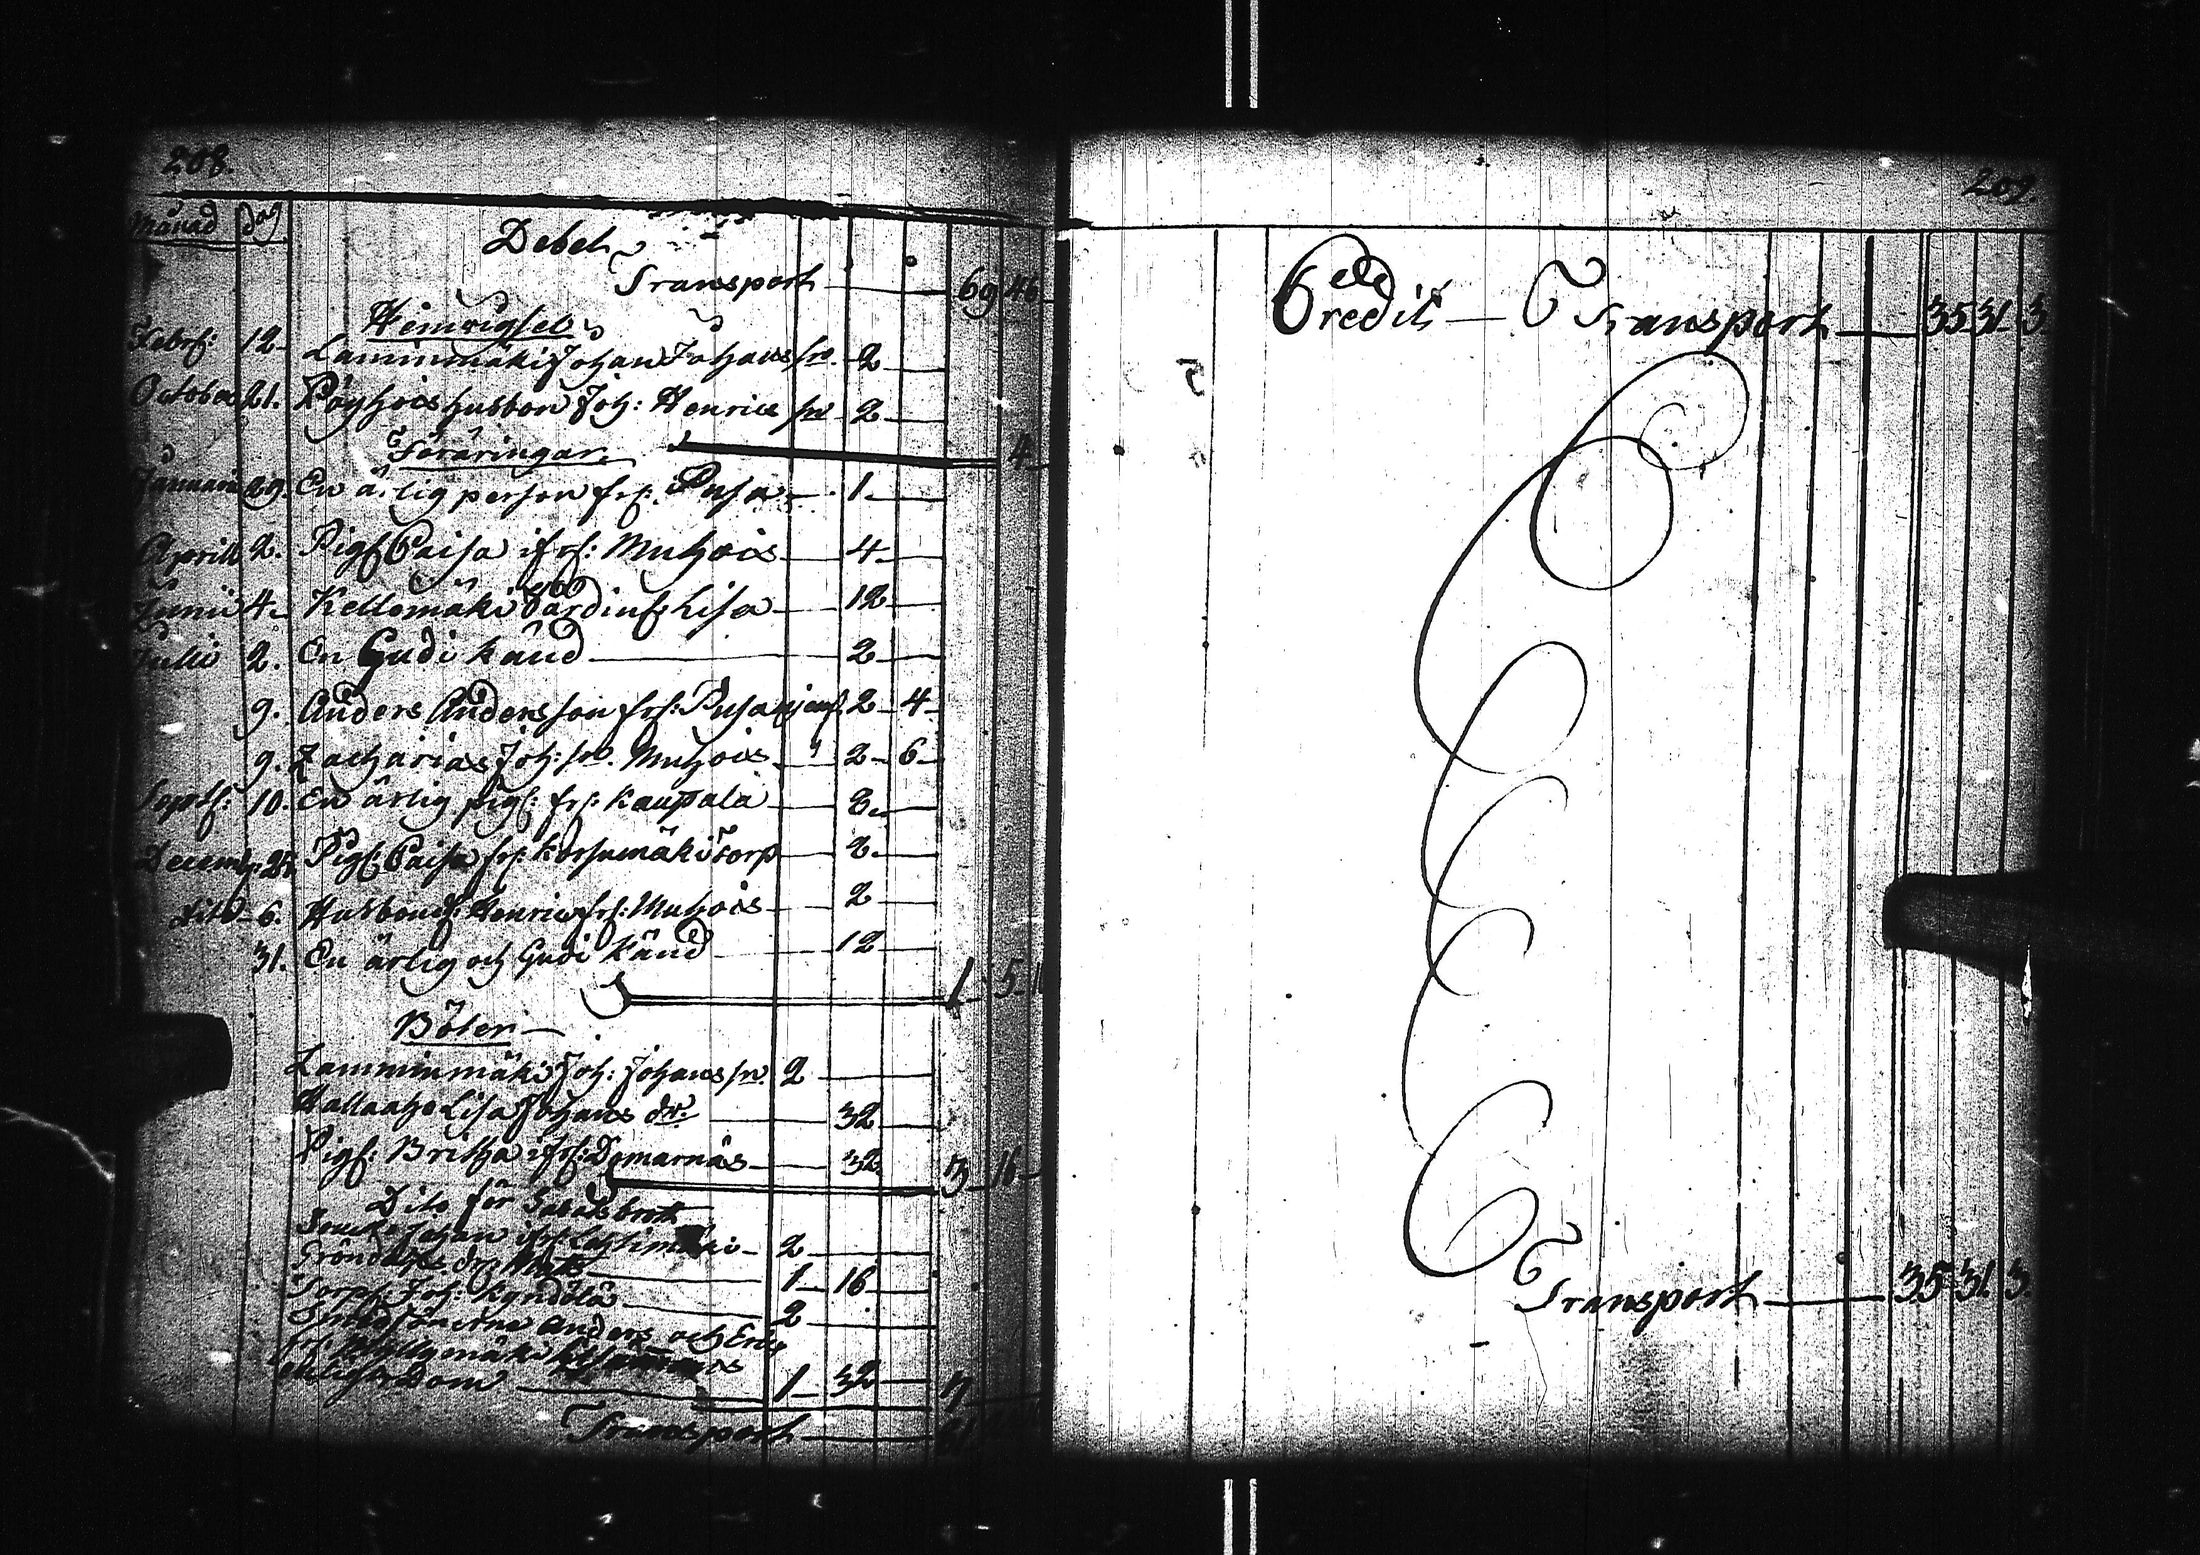 208.
Månad Dag
Debet
Transport 69 46
Hemvigsel
Febr: 12 Lamminmäki Johan Johans sn. 2
October 21. Pöyhöis husbon Joh: Henrics sn 2
4
Föräringar.
Januari 29. En ärlig person fr: Pusa 1
Aprill 2. Pig: Caisa ifr: Muhois 4
Junii 4 Kellomäki Lisa 12
Julii 2. En Gudi känd 2
9. Anders Andersson fr: Pusa 2 4
9. Zacharias Joh: sn. Muhois " 2 6
Septb: 10. En ärlig pig: fr: Kaupala 8
Decemb: 27. Pig: Caisa fr: Korsumäki Torp 2
Dito 6. Husbond: Henric fr: Muhois 2
31. En ärlig och Gudi Känd 12
1 5
Böter
Lamminmäki Joh: Johans sn. 2
Hallaaho Lisa Johans dr: 32
Pig: Britha ifr: Domarnäs 32 3 16
Dito för Sabatsbrott
Johan ifr: Lahtimäki 2
Gröndahls dr: 1 16
Torp: Joh: Kyndölä 2
Anders och Eric
fr:
enligt Dom 1 32 7
Transport
209.
Credit Transport 35 31 3.
Transport 35 31 3.